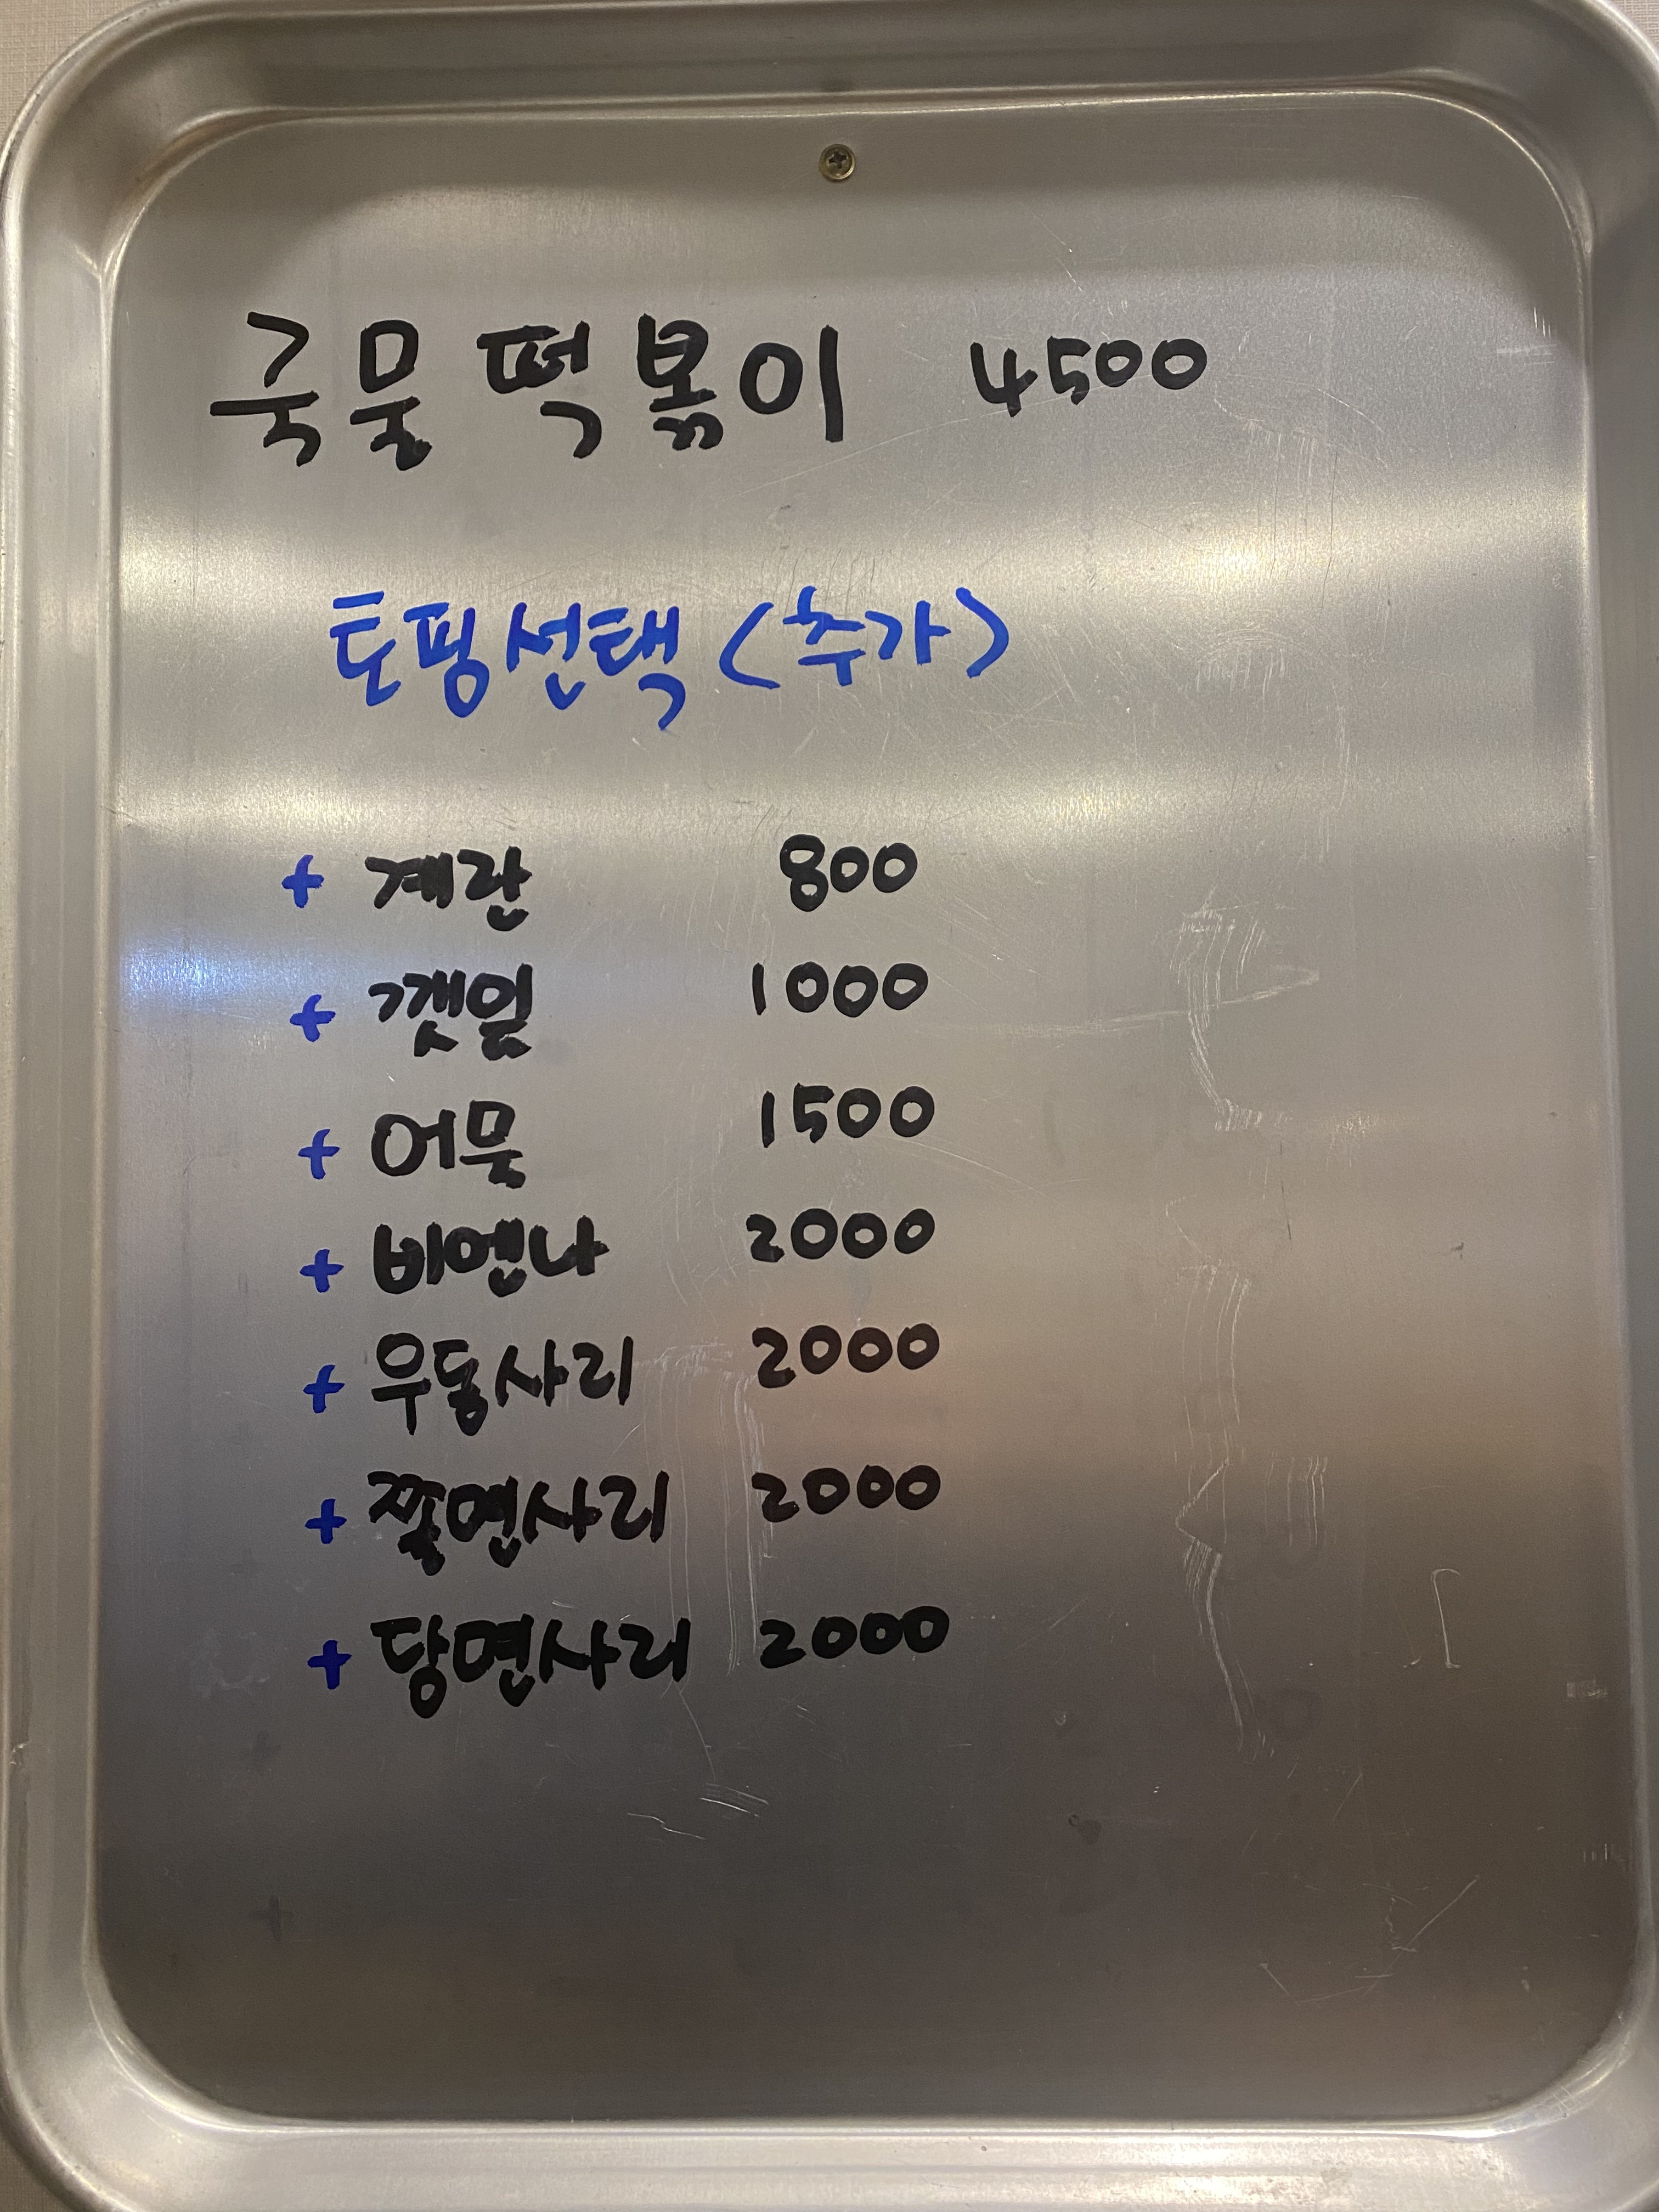 국물떡볶이 4500
토핑선택 (추가)
+ 계란 800
+ 깻잎 1000
+ 어묵 1500
+ 비엔나 2000
+ 우동사리 2000
+ 쫄면사리 2000
+ 당면사리 2000